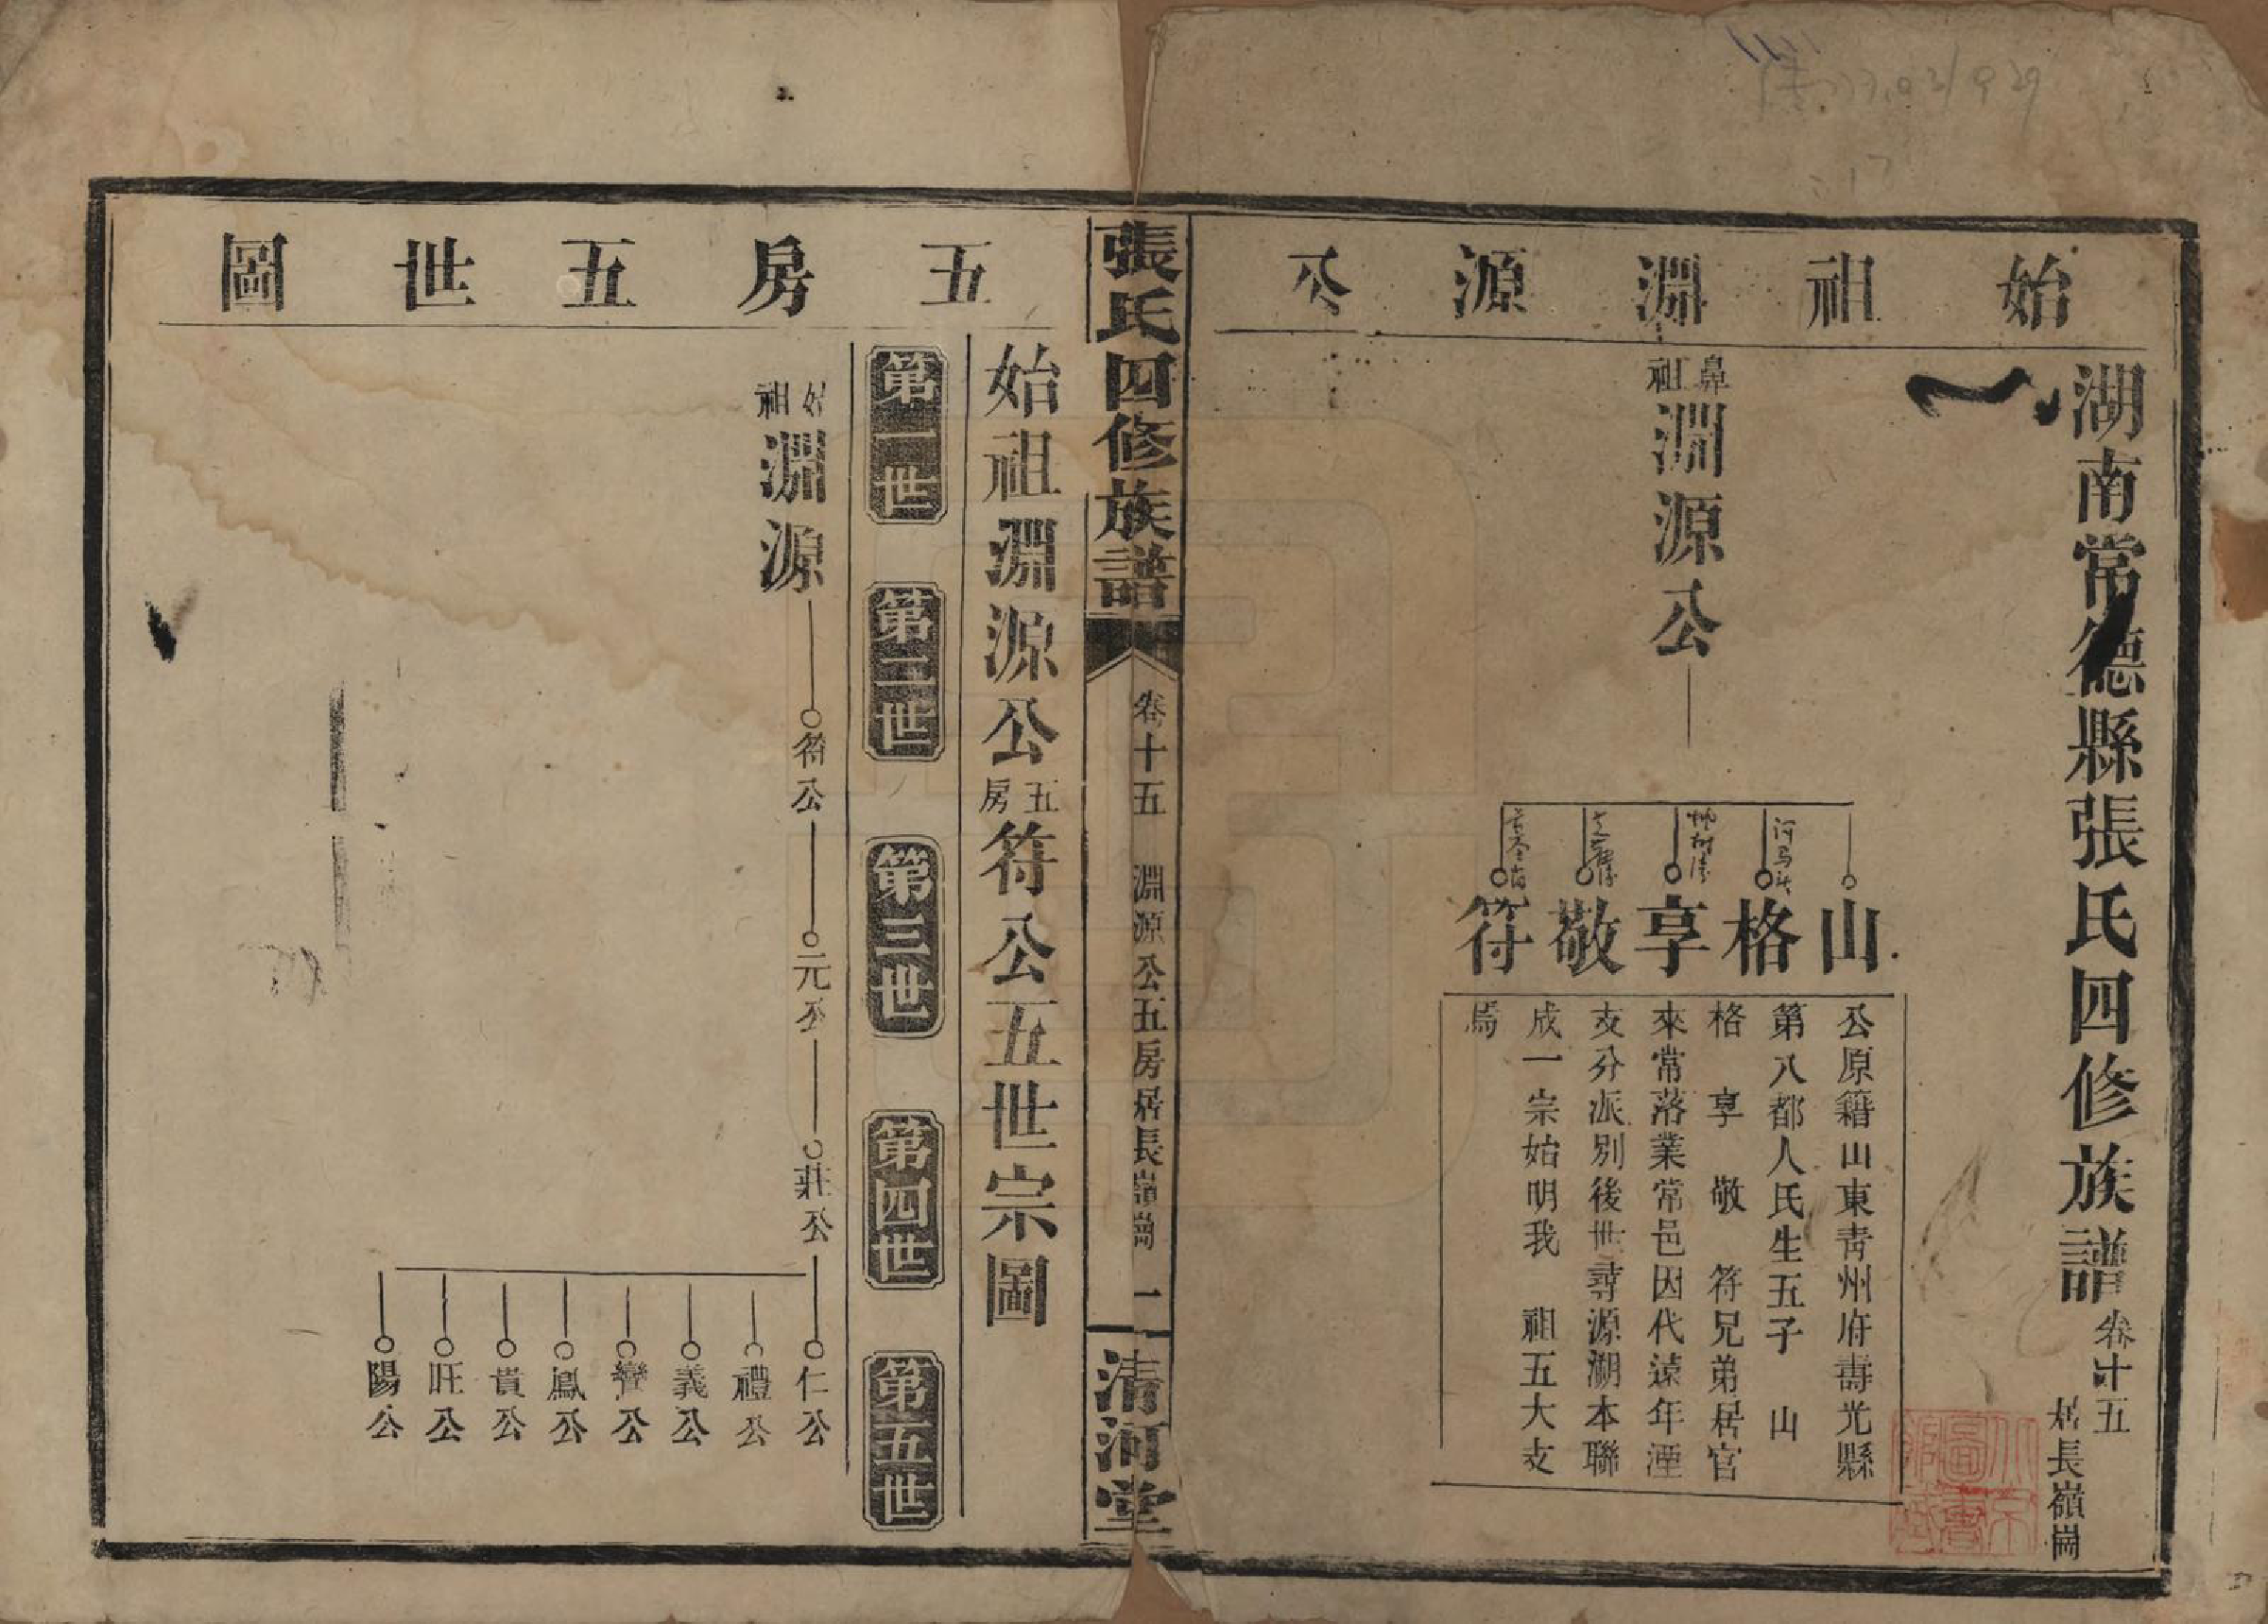 始祖淵源公
湖南常德縣張氏四修族譜卷十五
居長嶺崗
鼻祖淵源公
山
格
享
敬
符
公原籍山東青州府壽光縣
第八都人氏生五子　山
格　享　敬　符兄弟居官
來常落業常邑因代遠年湮
支分派別後世尋源溯本聯
成一宗始明我　祖五大支
焉
張氏四修族譜
卷十五　淵源公五房居長嶺崗　一
清河堂
五房五世圖
始祖淵源公五房符公五世宗圖
第一世
第二世
第三世
第四世
第五世
始祖淵源
符公
元公
莊公
仁公
禮公
義公
鸞公
鳳公
貴公
旺公
陽公